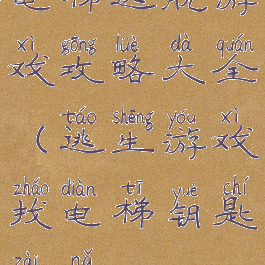 xì gōng lüè dà quán
戏攻略大全
táo shēng yóu xì
（逃生游戏
zhǎo diàn tī yuè chí
找电梯钥匙
zài nǎ